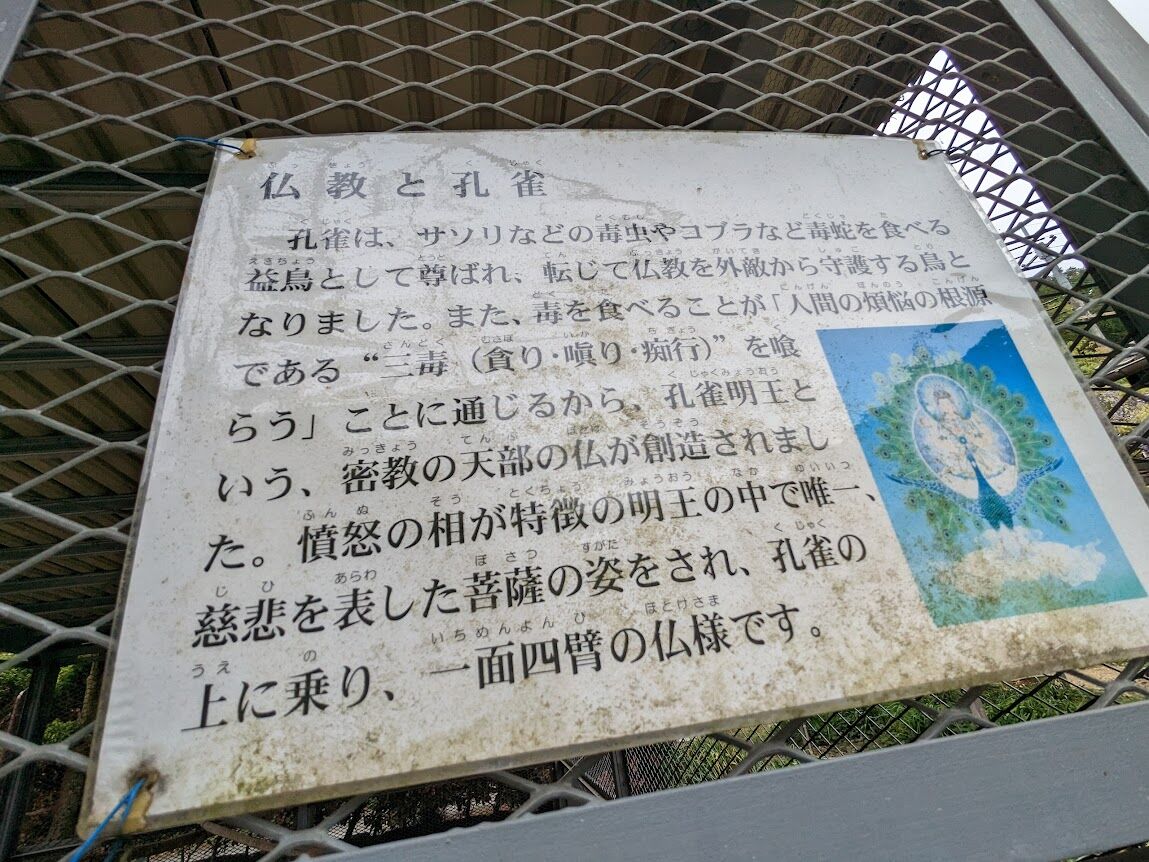 仏教と孔雀
孔雀は、サソリなどの毒虫やコブラなど毒蛇を食べる
益鳥として尊ばれ、転じて仏教を外敵から守護する鳥と
なりました。また、毒を食べることが「人間の煩悩の根源
である“三毒（貪り・嗔り・痴行）”を喰
らう」ことに通じるから、孔雀明王と
いう、密教の天部の仏が創造されまし
た。憤怒の相が特徴の明王の中で唯一、
慈悲を表した菩薩の姿をされ、孔雀の
上に乗り、一面四臂の仏様です。